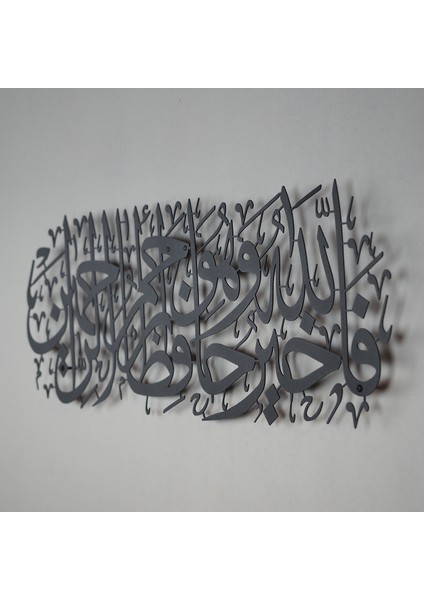 فالله خير حافظا وهو أرحم الراحمين